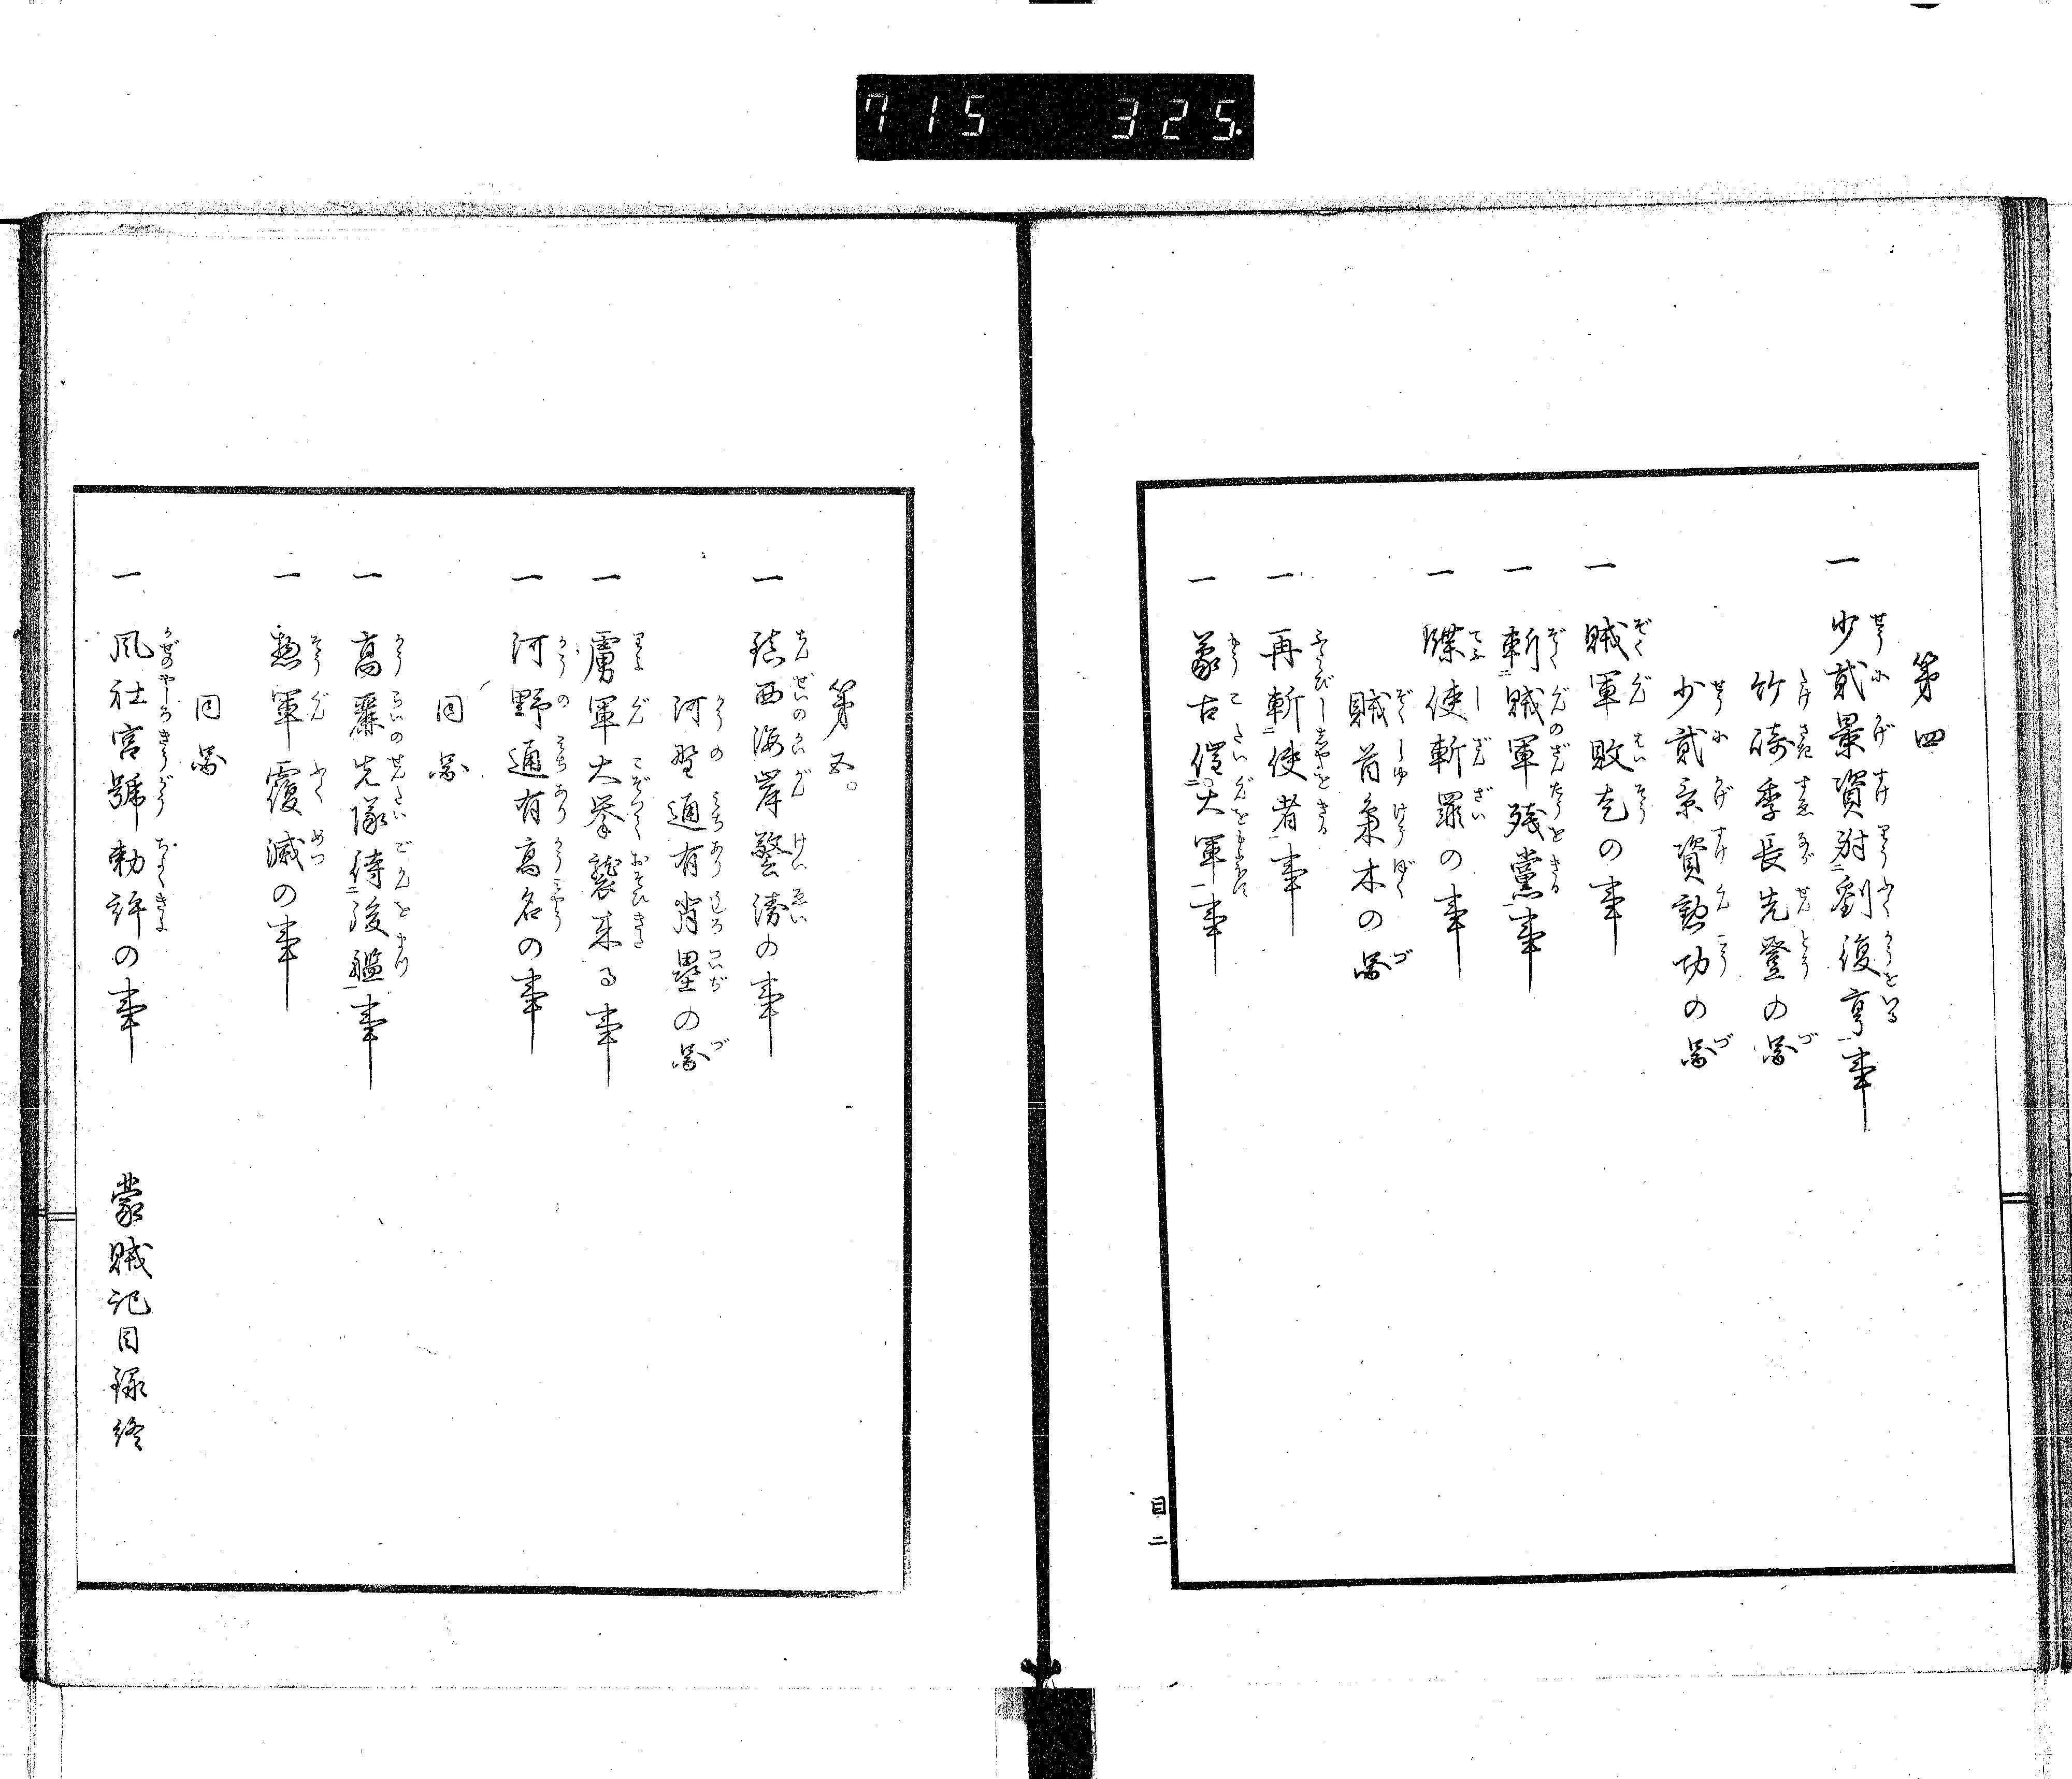 715 325.
第四
一 少貳景資射二劉復亨一事
竹崎季長先登の図
少貳景資勲功の図
一 賊軍敗走の事
一 斬二賊軍残黨一事
一 牒使斬罪の事
賊首梟木の図
一 再斬二使者一事
一 蒙古催二大軍一事
目二
第五
一 鎮西海岸警衛の事
河野通有背壘の図
一 虜軍大挙襲来る事
一 河野通有高名の事
同図
一 高麗先隊待二後艦一事
一 惣軍覆滅の事
同図
一 風社宮號勅許の事
蒙賊記目録終